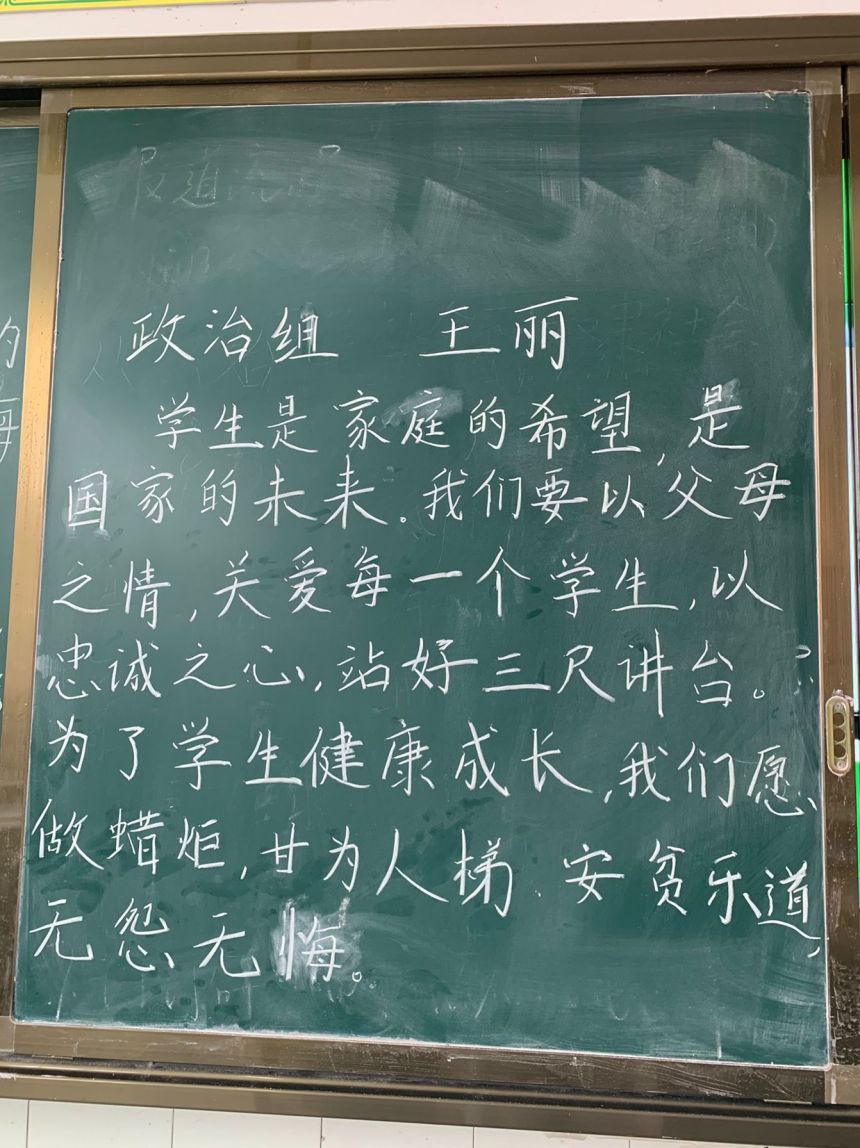 政治组 王丽
学生是家庭的希望,是
国家的未来。我们要以父母
之情,关爱每一个学生,以
忠诚之心,站好三尺讲台。
为了学生健康成长,我们愿
做蜡炬,甘为人梯、安贫乐道,
无怨无悔。